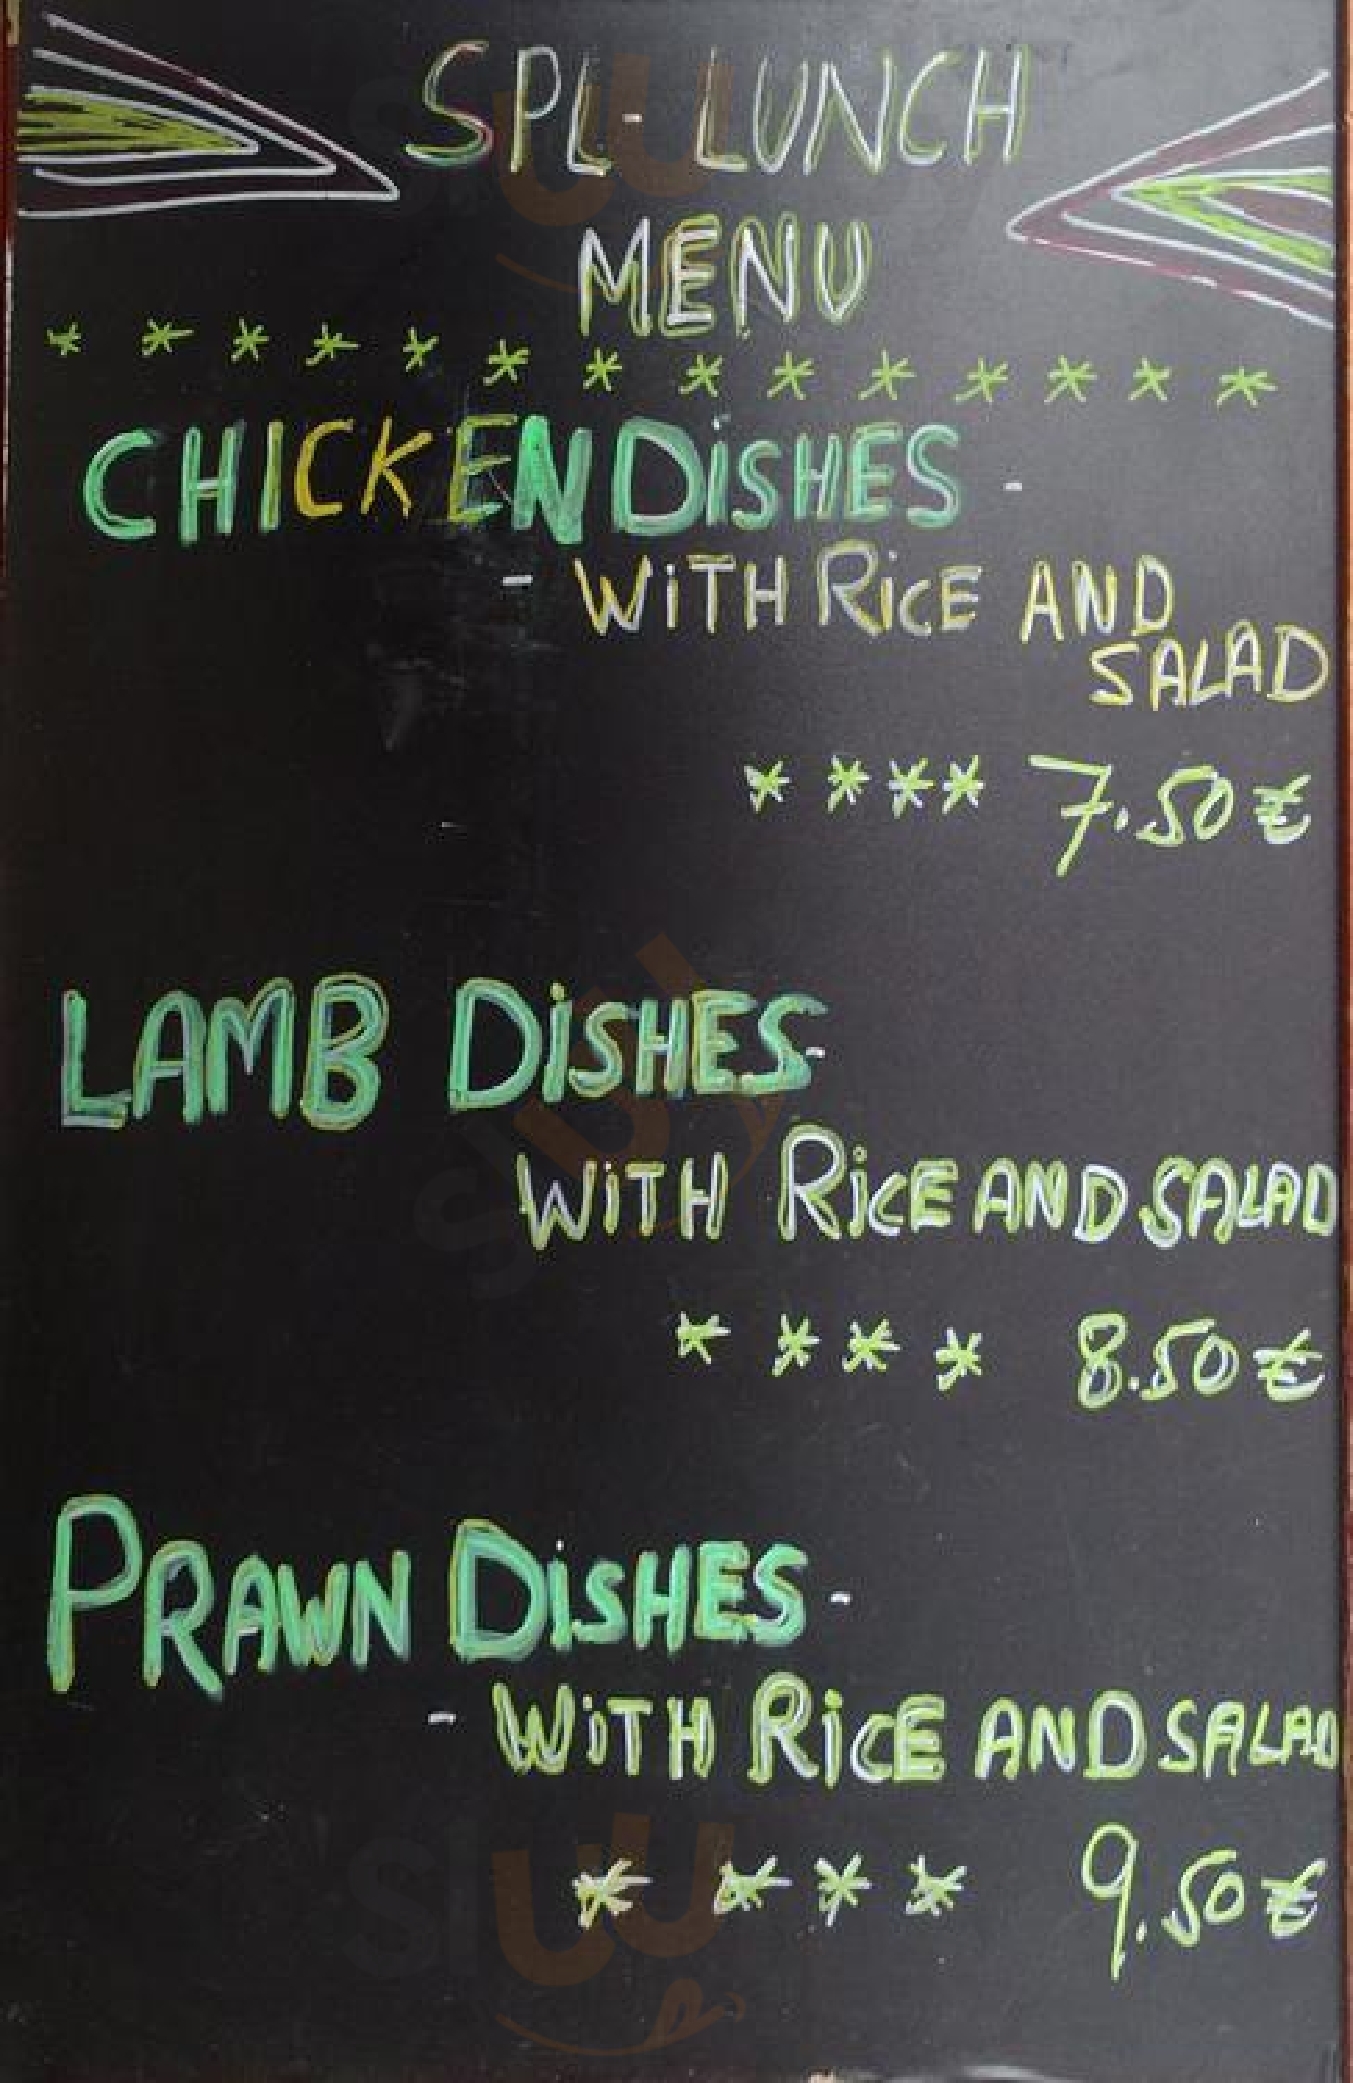 SPL-LUNCH
MENU
* * * * * * * * * * * * * *
CHICKEN DiSHES -
- WiTH RiCE AND
SALAD
* * * * 7.50 €
LAMB DiSHES-
WiTH RiCE AND SALAD
* * * * 8.50 €
PRAWN DiSHES -
- WiTH RiCE AND SALAD
* * * * 9.50 €